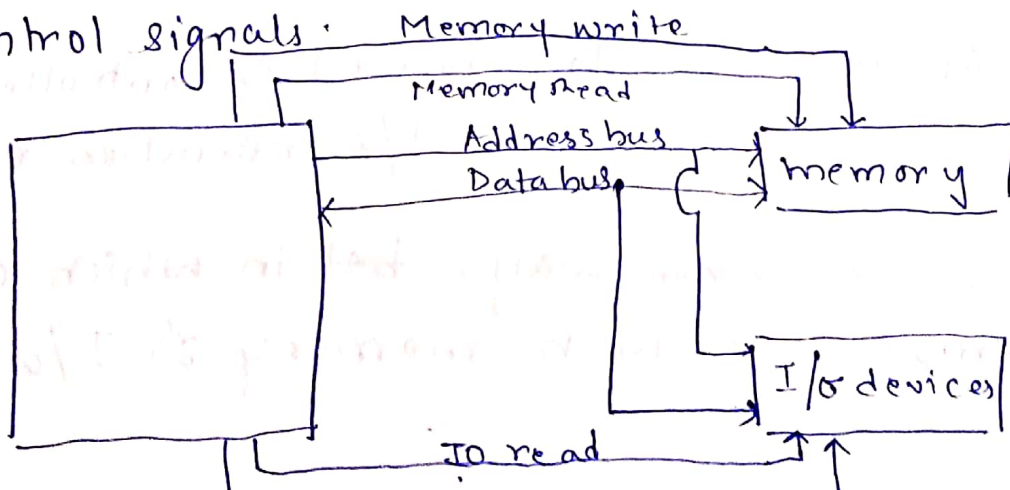 ntrol signals.
Memory write
Memory read
Address bus
Data bus
memory
I/o devices
IO read